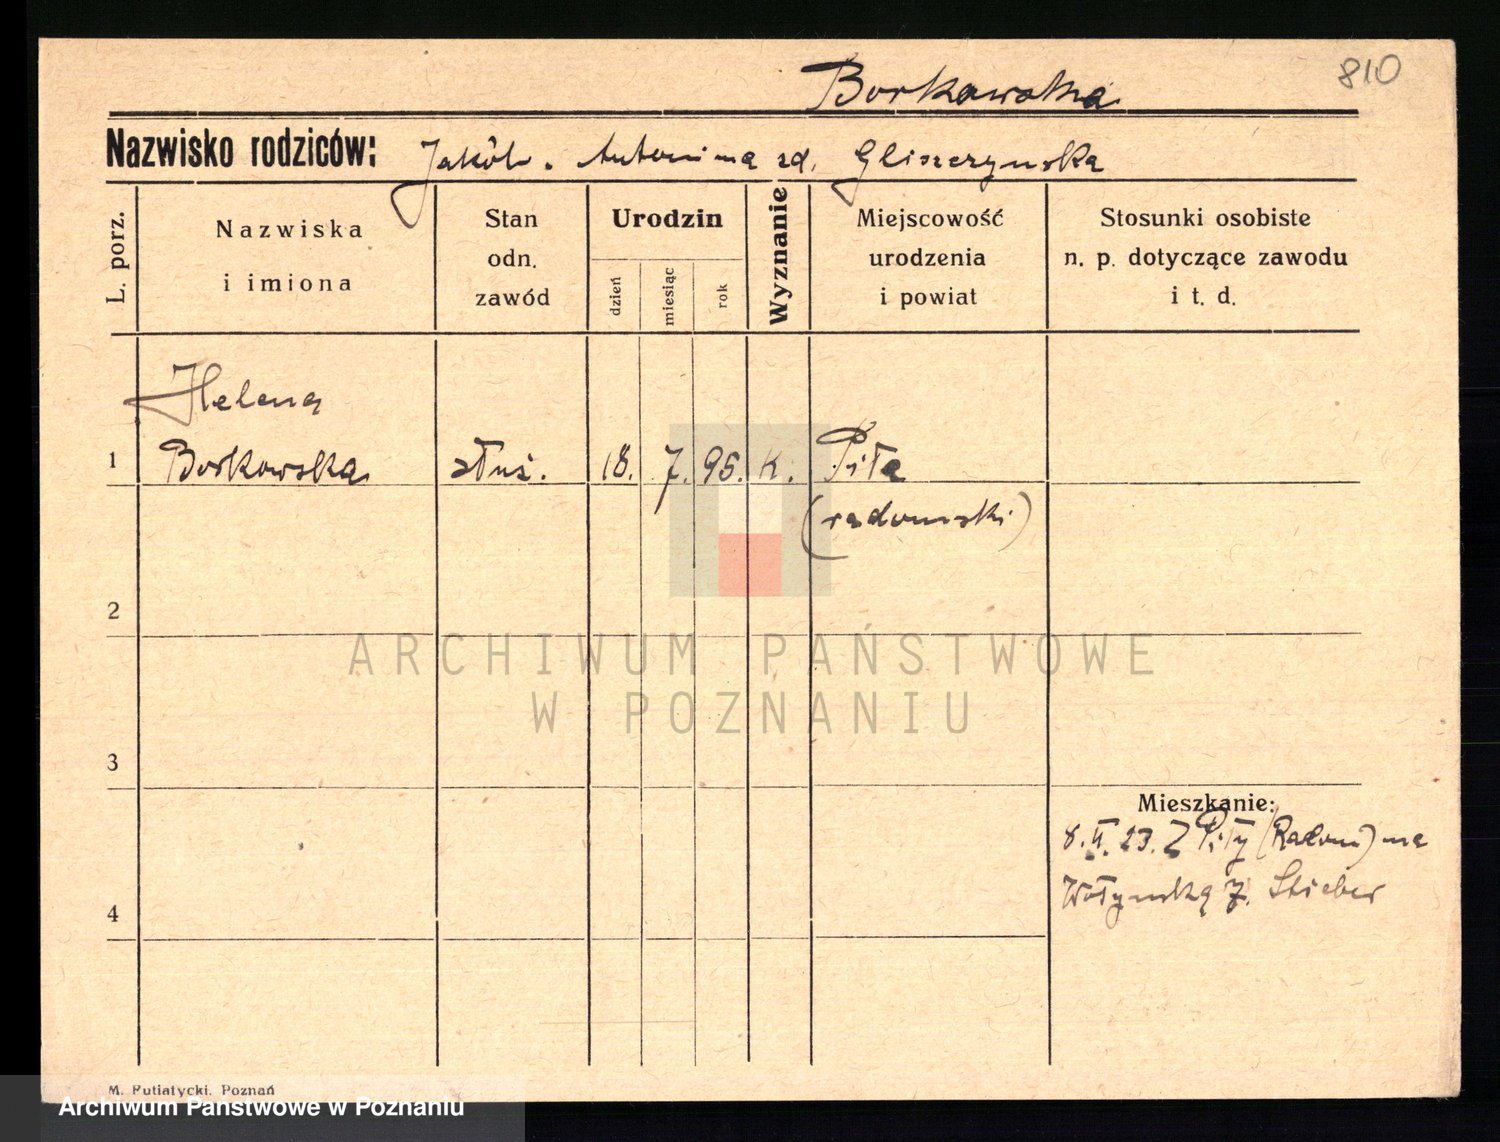 Borkowska
810
Nazwisko rodziców: Jakób. Antonina zd. Gliszczynska
L. porz.
Nazwiska
i imiona
Stan
odn.
zawód
Urodzin
dzień
miesiąc
rok
Wyznanie
Miejscowość
urodzenia
i powiat
Stosunki osobiste
n. p. dotyczące zawodu
i t. d.
Helena
1 Borkowska służ. 18. 7. 95. K. Piła
(radomski)
2
ARCHIWUM PAŃSTWOWE
W POZNANIU
3
Mieszkanie:
23. Z Piły (Radom) na
4 Wołyńską 7. Stieber
M. Putiatycki, Poznań
Archiwum Państwowe w Poznaniu